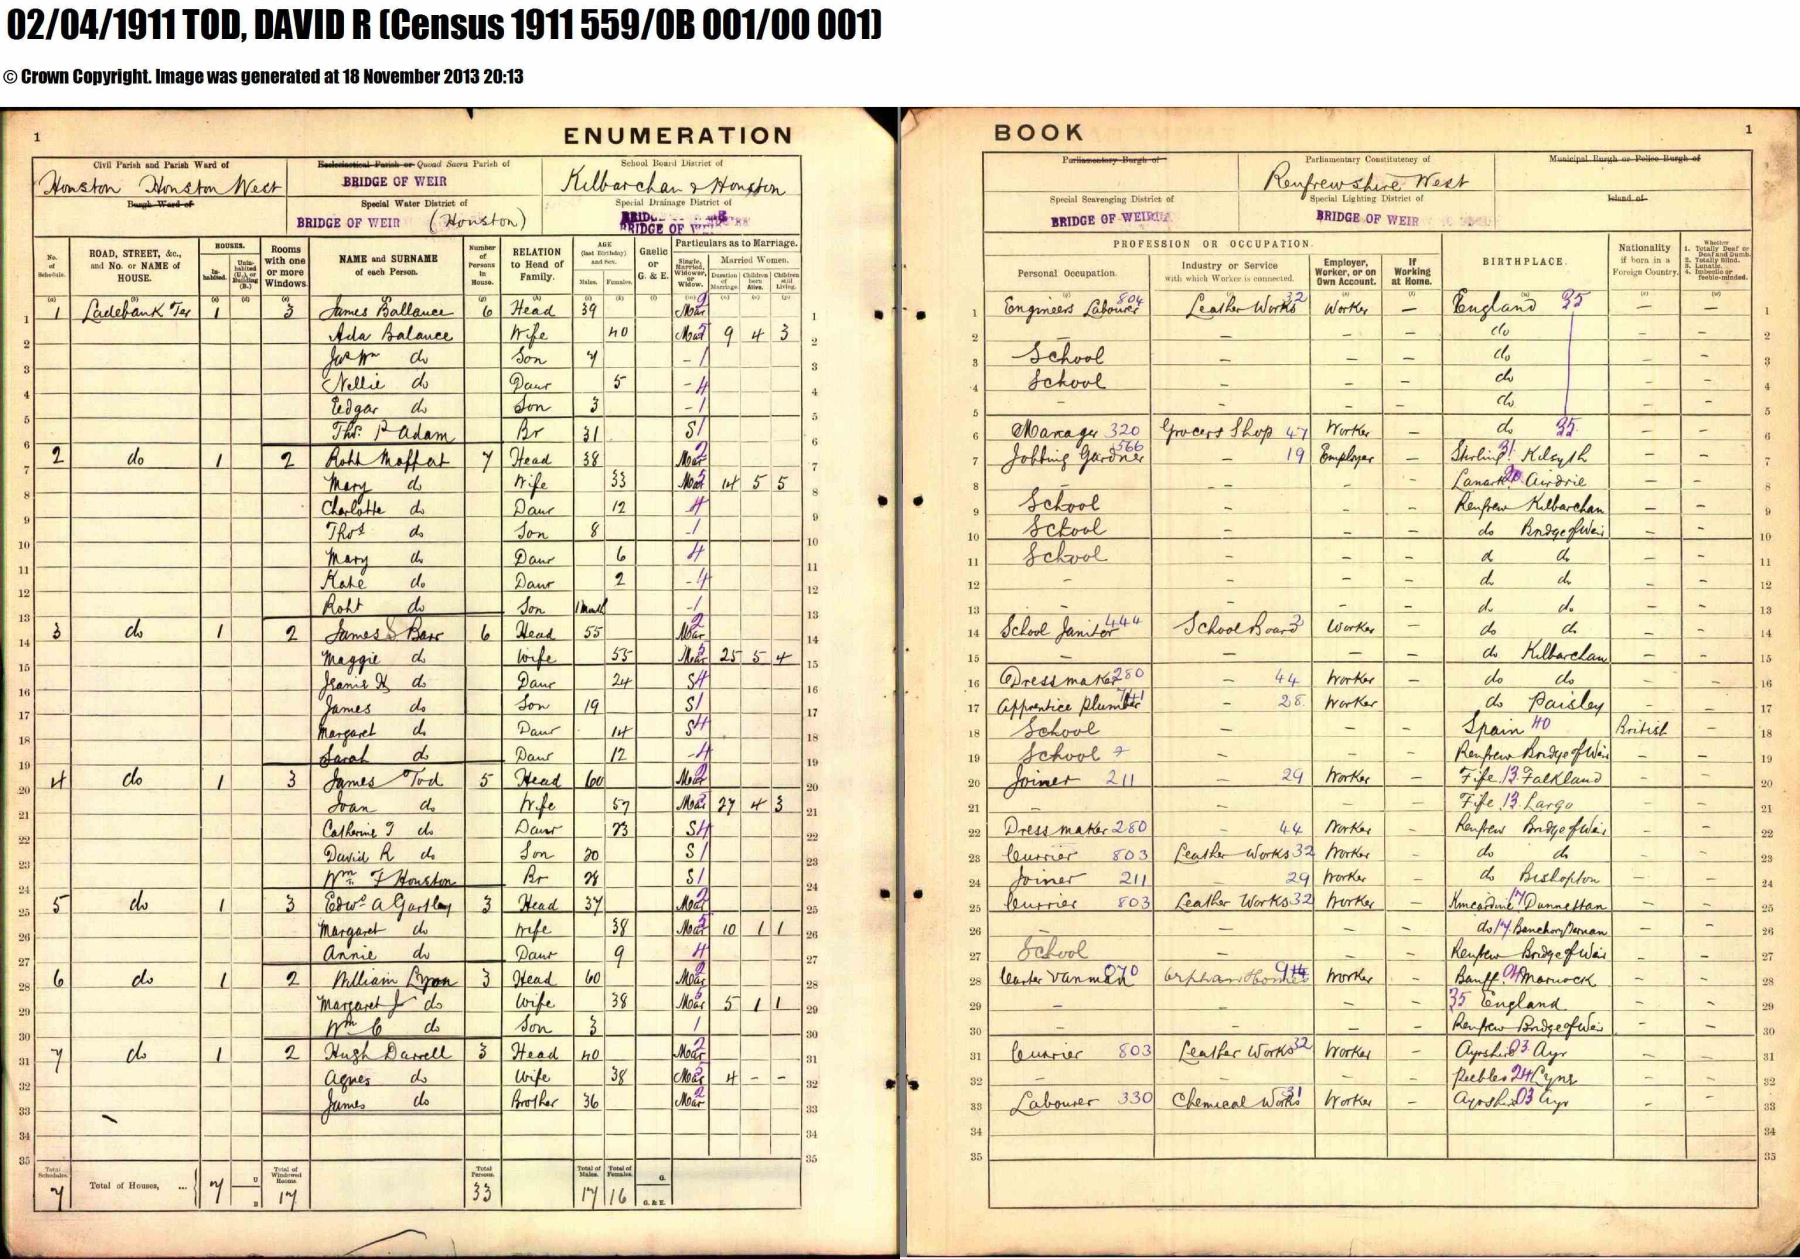 02/04/1911 TOD, DAVID R (Census 1911 559/0B 001/00 001)
© Crown Copyright. Image was generated at 18 November 2013 20:13
1 ENUMERATION
Civil Parish and Parish Ward of
Houston Houston West
Burgh Ward of
Ecclesiastical Parish or Quoad Sacra Parish of
BRIDGE OF WEIR
Special Water District of
BRIDGE OF WEIR (Houston)
School Board District of
Kilbarchan & Houston
Special Drainage District of
BRIDGE OF WEIR
No. of Schedule. ROAD, STREET, &c., and No. or NAME of HOUSE. HOUSES. Inhabited. Uninhabited (U.), or Building (B.) Rooms with one or more Windows. NAME and SURNAME of each Person. Number of Persons in House. RELATION to Head of Family. AGE (last Birthday) and Sex. Males. Females. Gaelic or G. & E. Particulars as to Marriage. Single, Married, Widower, or Widow. Married Women. Duration of Marriage. Children born Alive. Children still Living.
1 1 Ladebank Ter 1 3 James Ballance 6 Head 39 Mar 2 1
2 Ada Balance Wife 40 Mar 5 9 4 3 2
3 Jas Wm do Son 7 - 1 3
4 Nellie do Daur 5 - 4 4
5 Edgar do Son 3 - 1 5
6 Thos. P Adam Br 31 S 1 6
7 2 do 1 2 Robt Moffat 7 Head 38 Mar 2 7
8 Mary do Wife 33 Mar 5 14 5 5 8
9 Charlotte do Daur 12 4 9
10 Thos do Son 8 - 1 10
11 Mary do Daur 6 4 11
12 Kate do Daur 2 - 4 12
13 Robt do Son 1 month - 1 13
14 3 do 1 2 James S Barr 6 Head 55 Mar 2 14
15 Maggie do Wife 55 Mar 5 25 5 4 15
16 Jeanie do Daur 24 S 4 16
17 James do Son 19 S 1 17
18 Margaret do Daur 14 S 4 18
19 Sarah do Daur 12 - 4 19
20 4 do 1 3 James Tod 5 Head 60 Mar 2 20
21 Joan do Wife 57 Mar 5 27 4 3 21
22 Catherine do Daur 23 S 4 22
23 David R do Son 20 S 1 23
24 Wm. F Houston Br 28 S 1 24
25 5 do 1 3 Edwd A Gartley 3 Head 37 Mar 2 25
26 Margaret do Wife 38 Mar 5 10 1 1 26
27 Annie do Daur 9 4 27
28 6 do 1 2 William Lyon 3 Head 60 Mar 2 28
29 Margaret J do Wife 38 Mar 5 5 1 1 29
30 Wm C do Son 3 1 30
31 7 do 1 2 Hugh Darrell 3 Head 40 Mar 2 31
32 Agnes do Wife 38 Mar 5 4 - - 32
33 James do Brother 36 Mar 2 33
34 34
35 35
Total Schedules. 7 Total of Houses, ... 7 U B Total of Windowed Rooms. 17 Total Persons. 33 Total of Males. 17 Total of Females. 16 G. G. & E.
BOOK 1
Parliamentary Burgh of
Special Scavenging District of
BRIDGE OF WEIR
Parliamentary Constituency of
Renfrewshire West
Special Lighting District of
BRIDGE OF WEIR
Municipal Burgh or Police Burgh of
Island of
PROFESSION OR OCCUPATION. Personal Occupation. Industry or Service with which Worker is connected. Employer, Worker, or on Own Account. If Working at Home. BIRTHPLACE. Nationality if born in a Foreign Country. Whether 1. Totally Deaf or Deaf and Dumb. 2. Totally Blind. 3. Lunatic. 4. Imbecile or feeble-minded.
1 Engineers Labourer 804 Leather Works 32 Worker — England 35 — — 1
2 — — — — do — — 2
3 School — — — do — — 3
4 School — — — do — — 4
5 — — — — do — — 5
6 Manager 320 Grocers Shop 47 Worker — do 35 — — 6
7 Jobbing Gardner 566 — 19 Employer — Stirling 31 Kilsyth — — 7
8 — — — — Lanark 20 Airdrie — — 8
9 School — — — Renfrew Kilbarchan — — 9
10 School — — — do Bridge of Weir — — 10
11 School — — — d do — — 11
12 — — — — do do — — 12
13 — — — — do do. — — 13
14 School Janitor 444 School Board 3 Worker — do do — — 14
15 — — — — do Kilbarchan — — 15
16 Dressmaker 280 — 44 Worker — do do — — 16
17 Apprentice Plumber — 28 Worker — do Paisley — — 17
18 School — — — Spain 40 British — 18
19 School — — — Renfrew Bridge of Weir — — 19
20 Joiner 211 — 29 Worker — Fife 13 Falkland — — 20
21 — — — — Fife 13 Largo — — 21
22 Dress maker 280 — 44 Worker — Renfrew Bridge of Weir — — 22
23 Currier 803 Leather Works 32 Worker — do do — — 23
24 Joiner 211 — 29 Worker — do Bishopton — — 24
25 Currier 803 Leather Works 32 Worker — Kincardine 17 — — 25
26 — — — — do 17 Banchory Ternan — — 26
27 School — — — Renfrew Bridge of Weir — — 27
28 Carter Vanman 070 Orphan Homes Worker — Banff 04 Marnock — — 28
29 — — — — 35 England — — 29
30 — — — — Renfrew Bridge of Weir — — 30
31 Currier 803 Leather Works 32 Worker — Ayrshire 03 Ayr — — 31
32 — — — — Peebles 24 — — 32
33 Labourer 330 Chemical Works 31 Worker — Ayrshire 03 Ayr — — 33
34 34
35 35